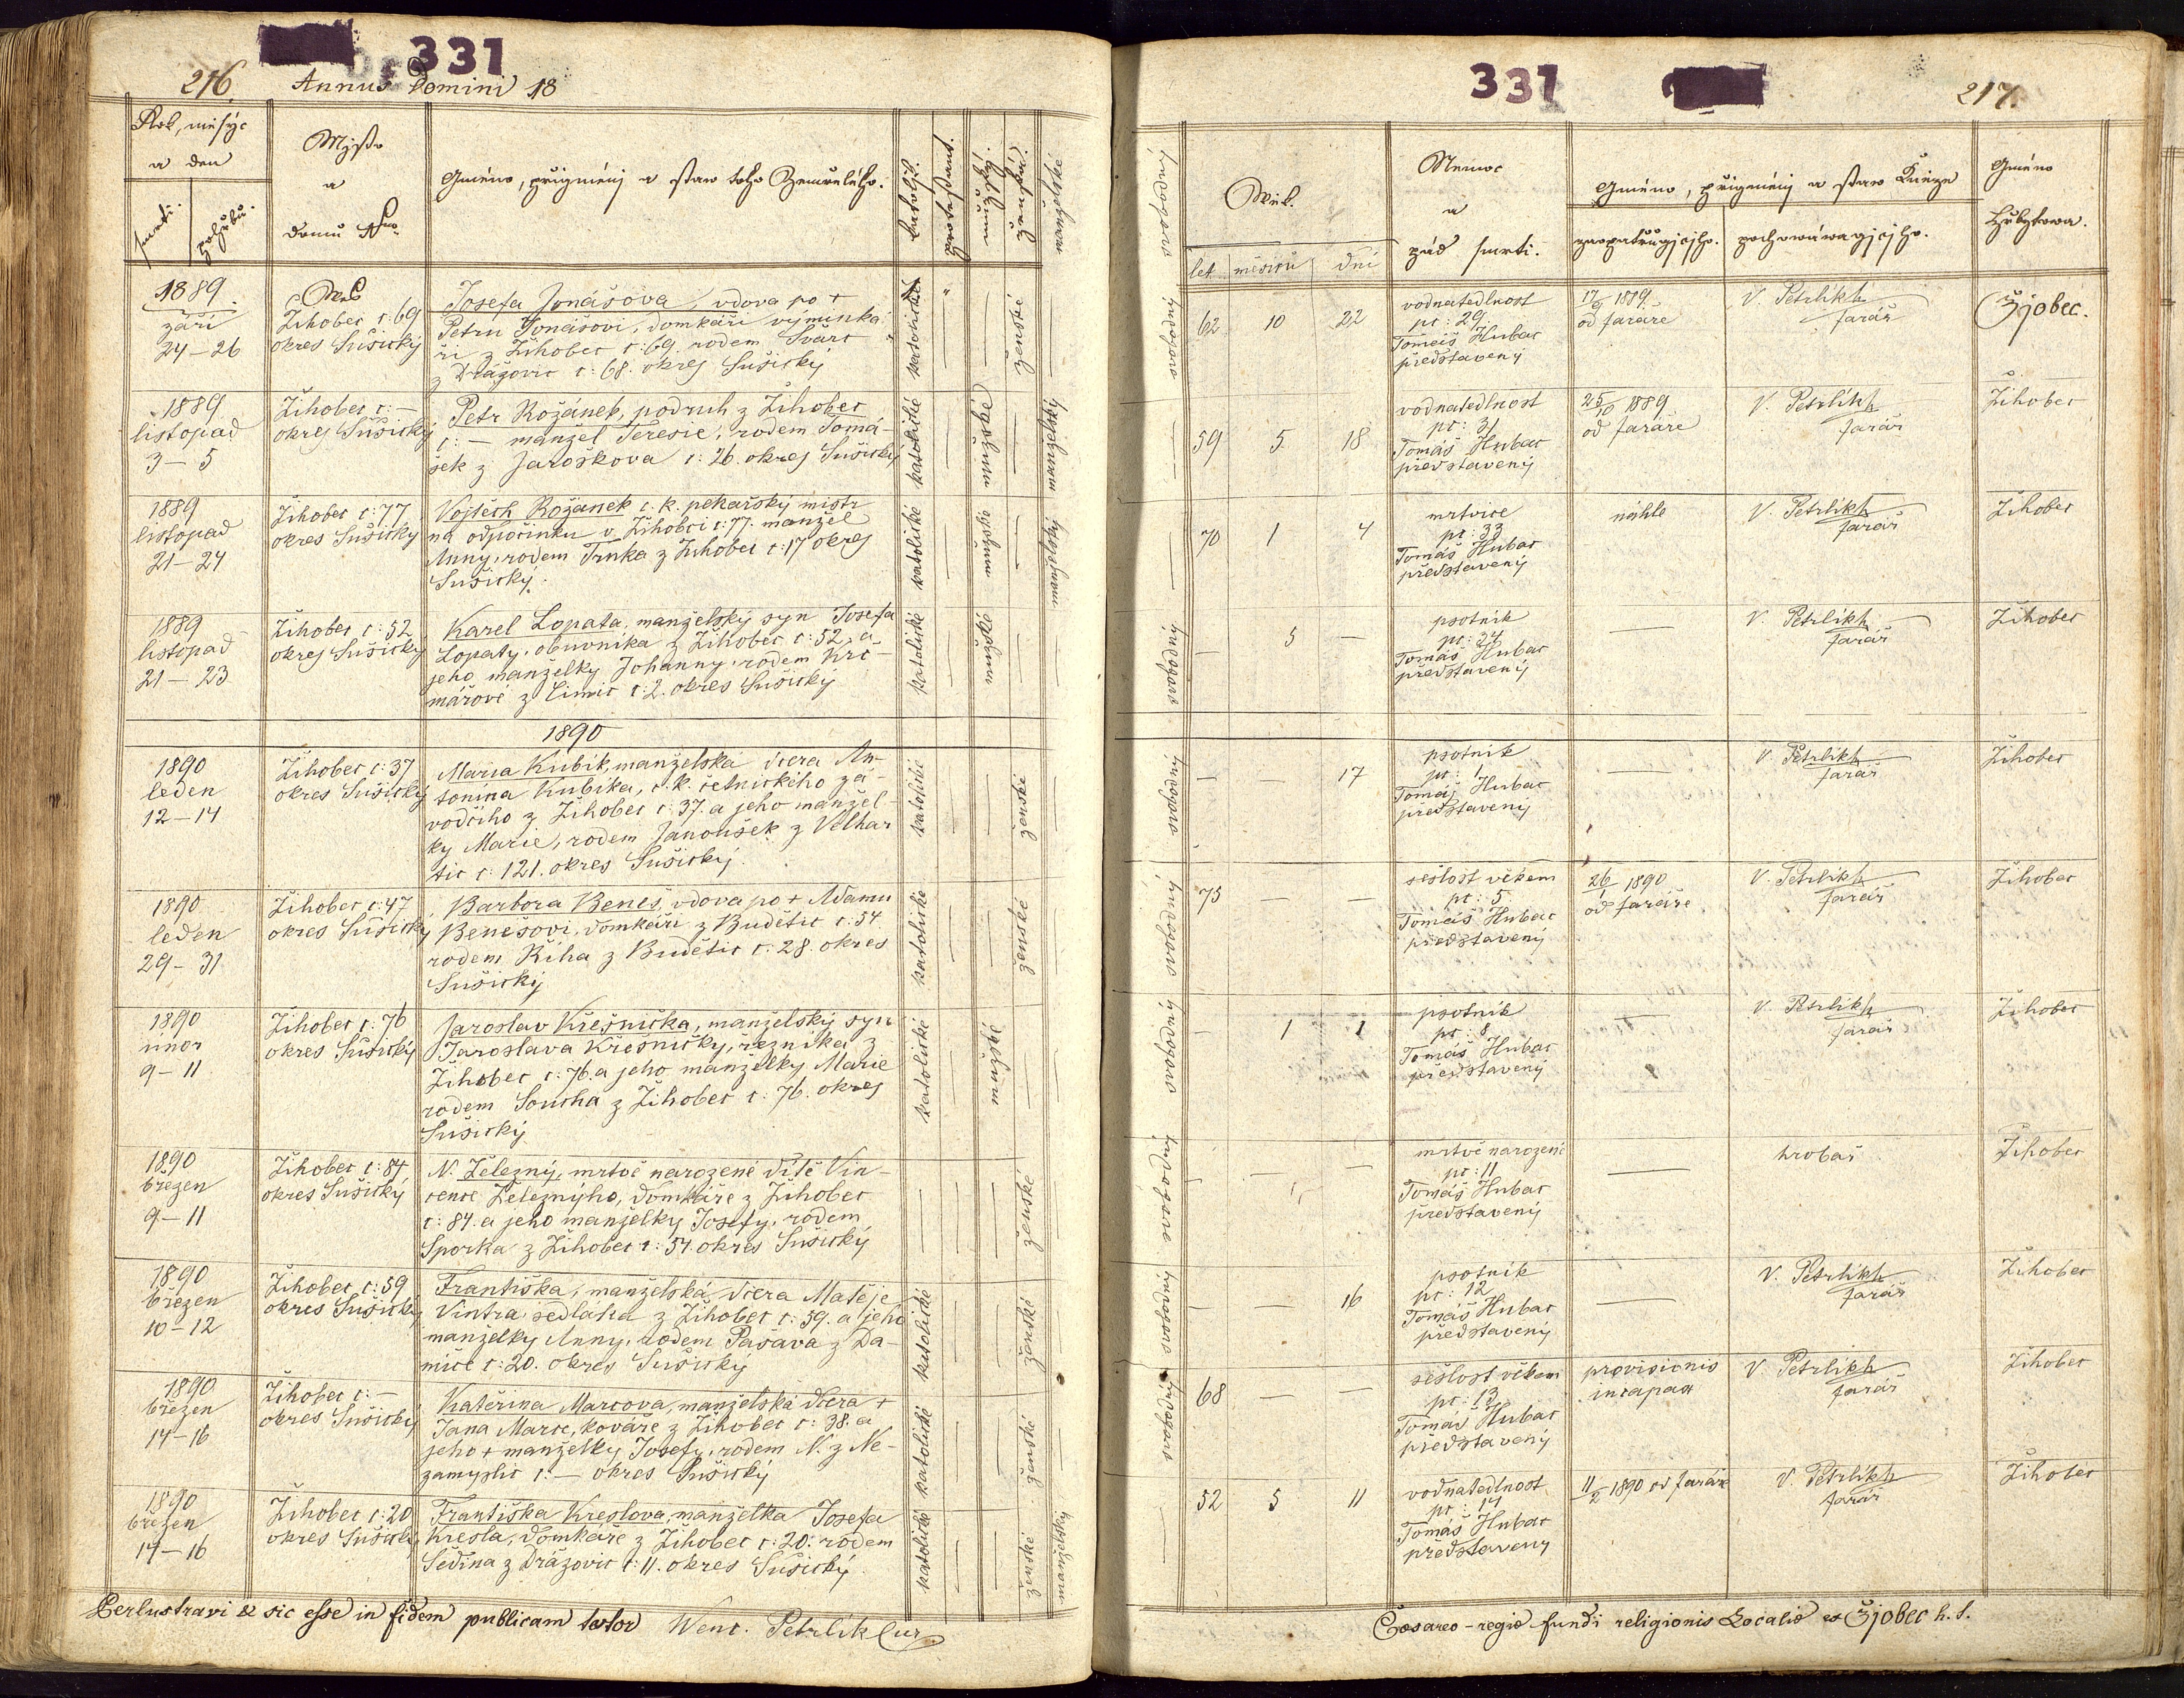 331
216. Annus Domini 18
Rok, měsýc
a den
smrti. pohřbu.
Mjsto
a
domu Nro.
Gméno, přigmènj a staw toho Zemřelého.
katolík.
protestant.
mužský.
ženská.
manželské
1889.
září
24–26
Žihobec č: 69
okres Sušický
Josefa Jonášova, vdova po +
Petru Jonášovi, domkáři výminká
ři z Žihobec č: 69. rodem Švarc
z Drážovic č: 68. okres Sušický
katolické
ženské
1889
listopad
3 – 5
Žihobec č: –
okres Sušický
Petr Rožánek, podruh z Žihobec
č: – manžel Teresie, rodem Tomá-
šek z Jaroškova č: 26. okres Sušický
katolické
mužské
manželský
1889
listopad
21–24
Žihobec č: 77
okres Sušický
Vojtěch Rožánek c. k. pekařský mistr
na odpočinku v Žihobci č: 77. manžel
Anny, rodem Trnka z Žihobec č: 17 okres
Sušický.
katolické
mužské
manželský
1889
listopad
21–23
Žihobec č: 52
okres Sušický
Karel Lopata, manželský syn Josefa
Lopaty, obuvníka z Žihobec č: 52. a
jeho manželky Johanny, rodem Krč-
mářové z Čimic č: 2. okres Sušický
katolické
mužské
1890
1890
leden
12–14
Žihobec č: 37
okres Sušický
Maria Kubík, manželská dcera An-
tonína Kubíka, c. k. četnického zá-
vodčího z Žihobec č: 37. a jeho manžel-
ky Marie, rodem Janoušek z Velhar
tic č: 121. okres Sušický.
katolické
ženské
1890
leden
29–31
Žihobec č: 47
okres Sušický
Barbora Beneš, vdova po + Adamu
Benešovi, domkáři z Budětic č: 54
rodem Říha z Budětic č: 28. okres
Sušický
katolické
ženské
1890
únor
9–11
Žihobec č: 76
okres Sušický
Jaroslav Křesnička, manželský syn
Jaroslava Křesničky, řezníka z
Žihobec č: 76. a jeho manželky Marie
rodem Soucha z Žihobec č: 76. okres
Sušický
katolické
mužské
1890
březen
9–11
Žihobec č: 84
okres Sušický
N. Železný, mrtvě narozené dítě Vin-
cence Železnýho, domkáře z Žihobec
č: 84. a jeho manželky Josefy, rodem
Sporka z Žihobec č: 54. okres Sušický
ženské
1890
březen
10–12
Žihobec č: 59
okres Sušický
Františka, manželská dcera Matěje
Vintra sedláka z Žihobec č: 59. a jeho
manželky Anny, rodem Pašava z Da-
mičč č: 20. okres Sušický
katolické
ženské
1890
březen
14–16
Žihobec č: –
okres Sušický
Kateřina Marcova, manželská dcera +
Jana Marce, kováře z Žihobec č: 38. a
jeho + manželky Josefy, rodem N. z Ne-
zamyslic č: – okres Sušický
katolické
ženské
1890
březen
14–16
Žihobec č: 20
okres Sušický
Františka Kreslova, manželka Josefa
Kresla, domkáře z Žihobec č: 20. rodem
Šedina z Drážovic č: 11. okres Sušický.
katolické
ženské
manželský
Perlustravi & sic esse in fidem publicam testor Wenc. Petrlík Cur.
331
217.
svobodný
Wěk.
let měsíců dní
Nemoc
a
způs smrti.
Gméno, přigmènj a staw Kněze
zaopatřugjcjho. pochowáwagjcjho.
Gméno
hřbytowa.
62 10 22
vodnatedlnost
pč: 29.
Tomáš Hubac
představený
17/9 1889.
od faráře
V. Petrlíkh
farář
Žjobec.
59 5 18
vodnatedlnost
pč: 31
Tomáš Hubac
představený
25/10 1889
od faráře
V. Petrlíkh
farář
Žihobec
70 1 4
mrtvice
pč: 33
Tomáš Hubac
představený
náhle
V. Petrlíkh
farář
Žihobec
– 5 –
psotník
pč: 34
Tomáš Hubac
představený
V. Petrlíkh
farář
Žihobec
– – 17
psotník
pč: 1
Tomáš Hubac
představený
V. Petrlíkh
farář
Žihobec
75 – –
sešlost věkem
pč: 5
Tomáš Hubac
představený
26/1 1890
od faráře
V. Petrlíkh
farář
Žihobec
– 1 1
psotník
pč: 8
Tomáš Hubac
představený
V. Petrlíkh
farář
Žihobec
mrtvě narozené
pč: 11
Tomáš Hubac
představený
hrobař
Žihobec
– – 16
psotník
pč: 12
Tomáš Hubac
představený
V. Petrlíkh
farář
Žihobec
68 – –
sešlost věkem
pč: 13
Tomáš Hubac
představený
provisionis
incapax
V. Petrlíkh
farář
Žihobec
52 5 11
vodnatedlnost
pč: 14
Tomáš Hubac
představený
11/2 1890 od faráře
V. Petrlíkh
farář
Žihobec
Cæsareo-regio fundi religionis Localis es Žjobec h. f.